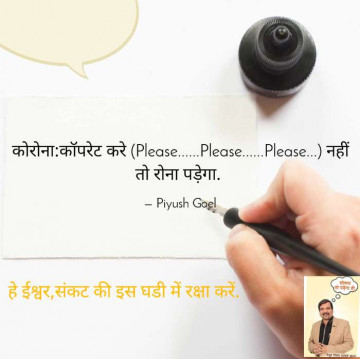 कोरोना:कॉपरेट करे (Please......Please......Please...) नहीं
तो रोना पड़ेगा.
— Piyush Goel
हे ईश्वर,संकट की इस घडी में रक्षा करें.